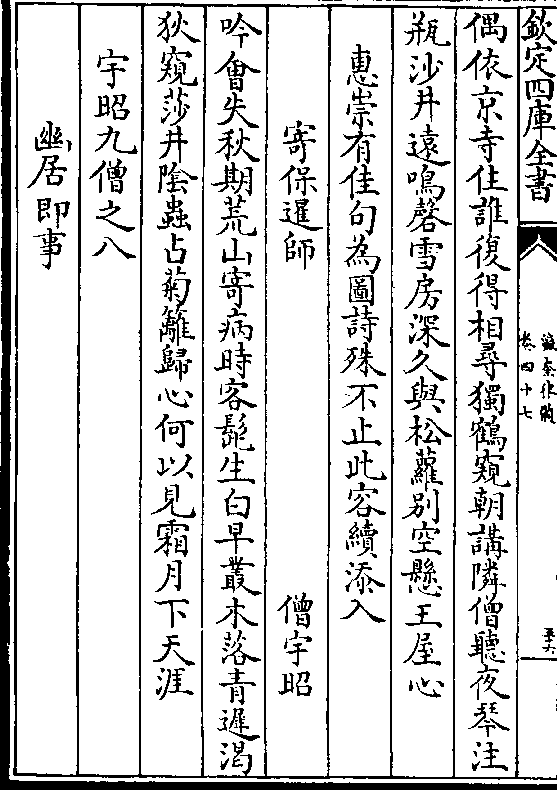 欽定四庫全書
瀛奎律髓
卷四十七
偶依京寺住誰復得相尋獨鶴窺朝講隣僧聽夜琴注
瓶沙井遠鳴磬雪房深久與松蘿别空懸王屋心
惠崇有佳句為圖詩殊不止此容續添入
寄保暹師　僧宇昭
吟㑹失秋期荒山寄病時客髭生白早叢木落青遲渴
狄窺莎井陰蟲占菊籬歸心何以見霜月下天涯
宇昭九僧之八
幽居即事